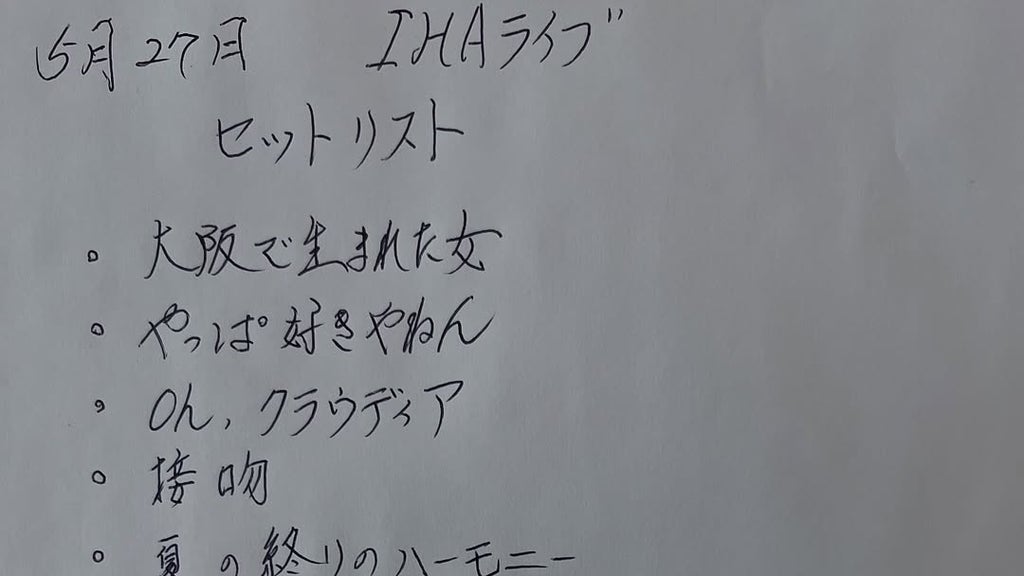 5月27日 IHAライブ
セットリスト
。大阪で生まれた女
。やっぱ好きやねん
。Oh, クラウディア
。接吻
。夏の終りのハーモニー